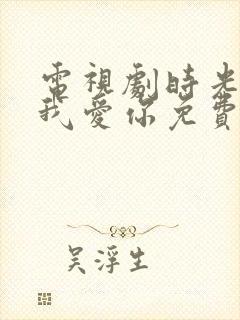 電視劇時光
我愛你免費
吴浮生